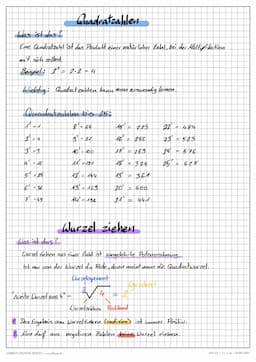 Quadratzahlen
Was ist das?
Eine Quadratzahl ist das Produkt einer natürlichen Zahl, bei der Multiplikation
mit sich selbst.
Beispiel: 2² = 2·2 = 4
Wichtig: Quadratzahlen kann man auswendig lernen.
Quadratzahlen bis 25:
1² = 1 8² = 64 15² = 225 22² = 484
2² = 4 9² = 81 16² = 256 23² = 529
3² = 9 10² = 100 17² = 289 24² = 576
4² = 16 11² = 121 18² = 324 25² = 625
5² = 25 12² = 144 19² = 361
6² = 36 13² = 169 20² = 400
7² = 49 14² = 196 21² = 441
Wurzel ziehen
Was ist das?
Wurzel ziehen aus einer Zahl ist
Ist nur von der Wurzel die Rede, dann meint man die Quadratwurzel.
Wurzelexponent
Wurzel aus 4" = ²√4 = 2 Wurzelwert
Wurzelzeichen Radikand
Das Ergebnis vom Wurzelziehen ist immer Positiv.
Man darf aus negativen Zahlen keine Wurzel ziehen.